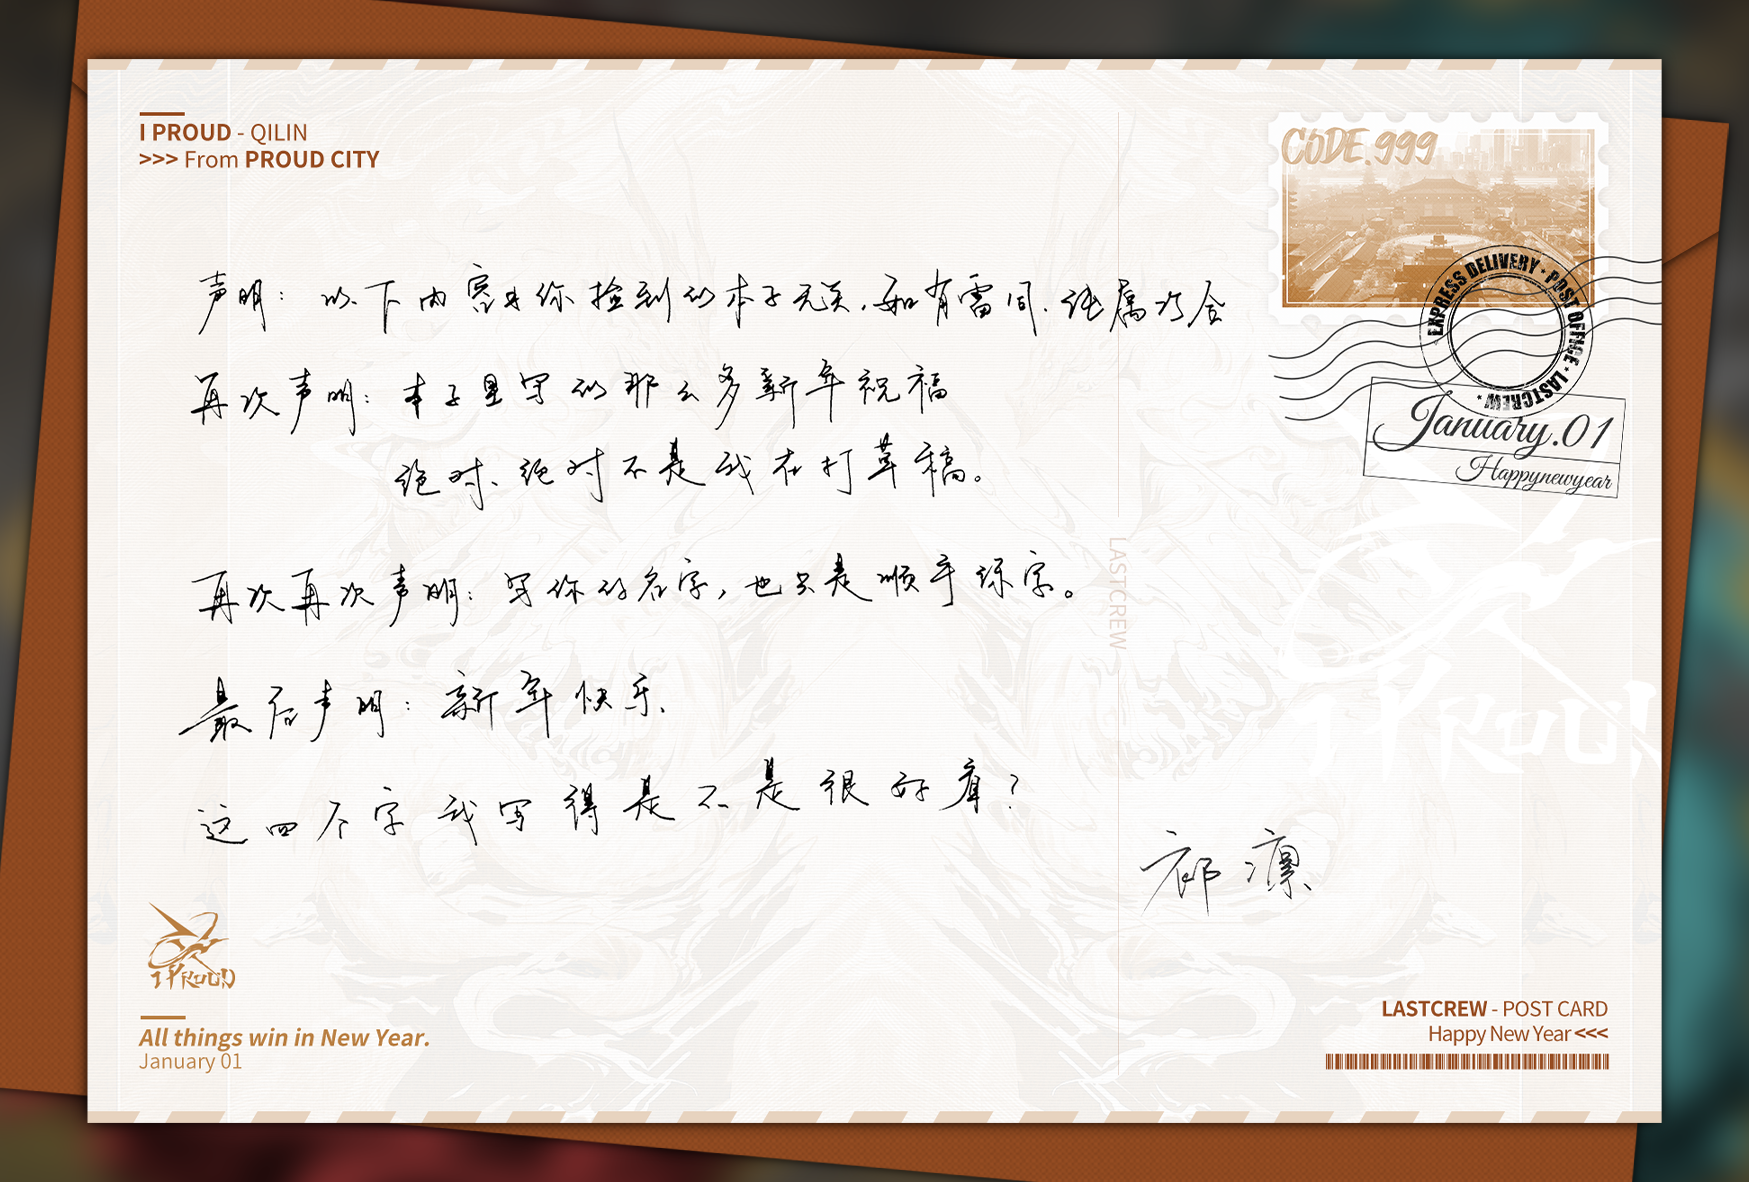 I PROUD - QILIN
>>> From PROUD CITY
CODE.999
EXPRESS DELIVERY · POST OFFICE · LASTCREW ·
January.01
Happynewyear
声明：以下内容与你捡到的本子无关，如有雷同，纯属巧合
再次声明：本子里写的那么多新年祝福
绝对、绝对不是我在打草稿。
再次再次声明：写你的名字，也只是顺手练字。
最后声明：新年快乐、
这四个字我写得是不是很好看？
祁凛
LASTCREW
I PROUD
I PROUD
All things win in New Year.
January 01
LASTCREW - POST CARD
Happy New Year <<<